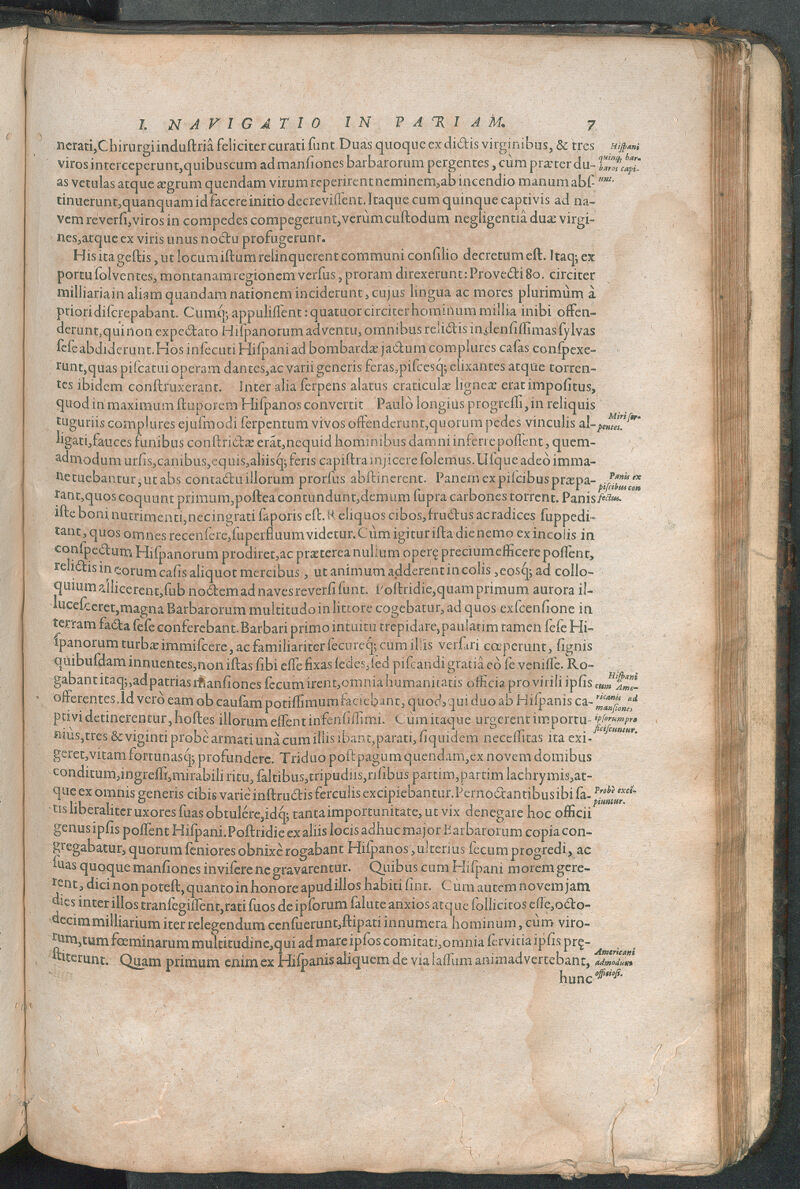 I. NAVIGATIO IN PARIAM. 7
nerati,Chirurgi induſtriâ feliciter curati ſunt Duas quoque ex dictis virginibus, & tres
viros interceperunt,quibuscum ad manſiones barbarorum pergentes, cùm præter du-
as vetulas atque ægrum quendam virum reperirent neminem,ab incendio manum abſ-
tinuerunt,quanquam id facere initio decreviſſent. Itaque cum quinque captivis ad na-
vem reverſi,viros in compedes compegerunt,verùm cuſtodum negligentiâ duæ virgi-
nes,atque ex viris unus noctu profugerunt.
Hispani
quinq; bar-
baros capi-
unt.
His ita geſtis, ut locum iſtum relinquerent communi conſilio decretum eſt. Itaq; ex
portu ſolventes, montanam regionem verſus, proram direxerunt: Provecti 80. circiter
milliaria in aliam quandam nationem inciderunt, cujus lingua ac mores plurimùm à
priori diſcrepabant. Cumq; appuliſſent: quatuor circiter hominum millia inibi offen-
derunt,qui non expectato Hiſpanorum adventu, omnibus relictis in denſiſſimas ſylvas
ſeſe abdiderunt. Hos inſecuti Hiſpani ad bombardæ jactum complures caſas conſpexe-
runt,quas piſcatui operam dantes,ac varii generis feras,piſcesq; elixantes atque torren-
tes ibidem conſtruxerant. Inter alia ſerpens alatus craticulæ ligneæ erat impoſitus,
quod in maximum ſtuporem Hiſpanos convertit Paulò longius progreſſi, in reliquis
tuguriis complures ejuſmodi ſerpentum vivos offenderunt,quorum pedes vinculis al-
ligati,fauces funibus conſtrictæ erāt,nequid hominibus damni inferre poſſent, quem-
admodum urſis,canibus,equis,aliisq; feris capiſtra injicere ſolemus. Uſque adeò imma-
nes tuebantur, ut abs contactu illorum prorſus abſtinerent. Panem ex piſcibus præpa-
rant,quos coquunt primum,poſtea contundunt,demum ſupra carbones torrent. Panis
iſte boni nutrimenti,nec ingrati ſaporis eſt. Reliquos cibos,fructus ac radices ſuppedi-
tant, quos omnes recenſere,ſuperfluum videtur. Cùm igitur iſta die nemo ex incolis in
conſpectum Hiſpanorum prodiret,ac præterea nullum operę precium efficere poſſent,
relictis in eorum caſis aliquot mercibus, ut animum adderent incolis, eosq; ad collo-
quium allicerent,ſub noctem ad naves reverſi ſunt. Poſtridie,quam primum aurora il-
luceſceret,magna Barbarorum multitudo in littore cogebatur, ad quos exſcenſione in
terram facta ſeſe conferebant. Barbari primo intuitu trepidare,paulatim tamen ſeſe Hi-
ſpanorum turbæ immiſcere, ac familiariter ſecureq; cum illis verſari cœperunt, ſignis
quibuſdam innuentes,non iſtas ſibi eſſe fixas ſedes,ſed piſcandi gratiâ eò ſe veniſſe. Ro-
gabant itaq;,ad patrias manſiones ſecum irent,omnia humanitatis officia pro virili ipſis
offerentes. Id verò eam ob cauſam potiſſimum faciebant, quod, qui duo ab Hiſpanis ca-
ptivi detinerentur, hoſtes illorum eſſent infenſiſſimi. Cùm itaque urgerent importu-
nius,tres & viginti probè armati unà cum illis ibant,parati, ſiquidem neceſſitas ita exi-
geret,vitam fortunasq; profundere. Triduo poſt pagum quendam,ex novem domibus
conditum,ingreſſi,mirabili ritu, ſaltibus,tripudiis,riſibus partim,partim lachrymis,at-
que ex omnis generis cibis variè inſtructis ferculis excipiebantur. Pernoctantibus ibi ſa-
tis liberaliter uxores ſuas obtulére,idq; tanta importunitate, ut vix denegare hoc officii
genus ipſis poſſent Hiſpani. Poſtridie ex aliis locis adhuc major Barbarorum copia con-
gregabatur, quorum ſeniores obnixè rogabant Hiſpanos, ulterius ſecum progredi, ac
ſuas quoque manſiones inviſere ne gravarentur. Quibus cum Hiſpani morem gere-
rent, dici non poteſt, quanto in honore apud illos habiti ſint. Cùm autem novem jam
dies inter illos tranſegiſſent,rati ſuos de ipſorum ſalute anxios atque ſollicitos eſſe,octo-
decim milliarium iter relegendum cenſuerunt,ſtipati innumera hominum, cùm viro-
rum,tum fœminarum multitudine,qui ad mare ipſos comitati,omnia ſervitia ipſis prę-
ſtiterunt. Quam primum enim ex Hiſpanis aliquem de via laſſum animadvertebant,
hunc
Miri ſer-
pentes.
Panis ex
piſcibus con
fectus.
Hiſpani
cum Ame-
ricanis ad
manſiones
ipſorum pro
ficiſcuntur.
Probè exci-
piuntur.
Americani
admodum
officioſi.